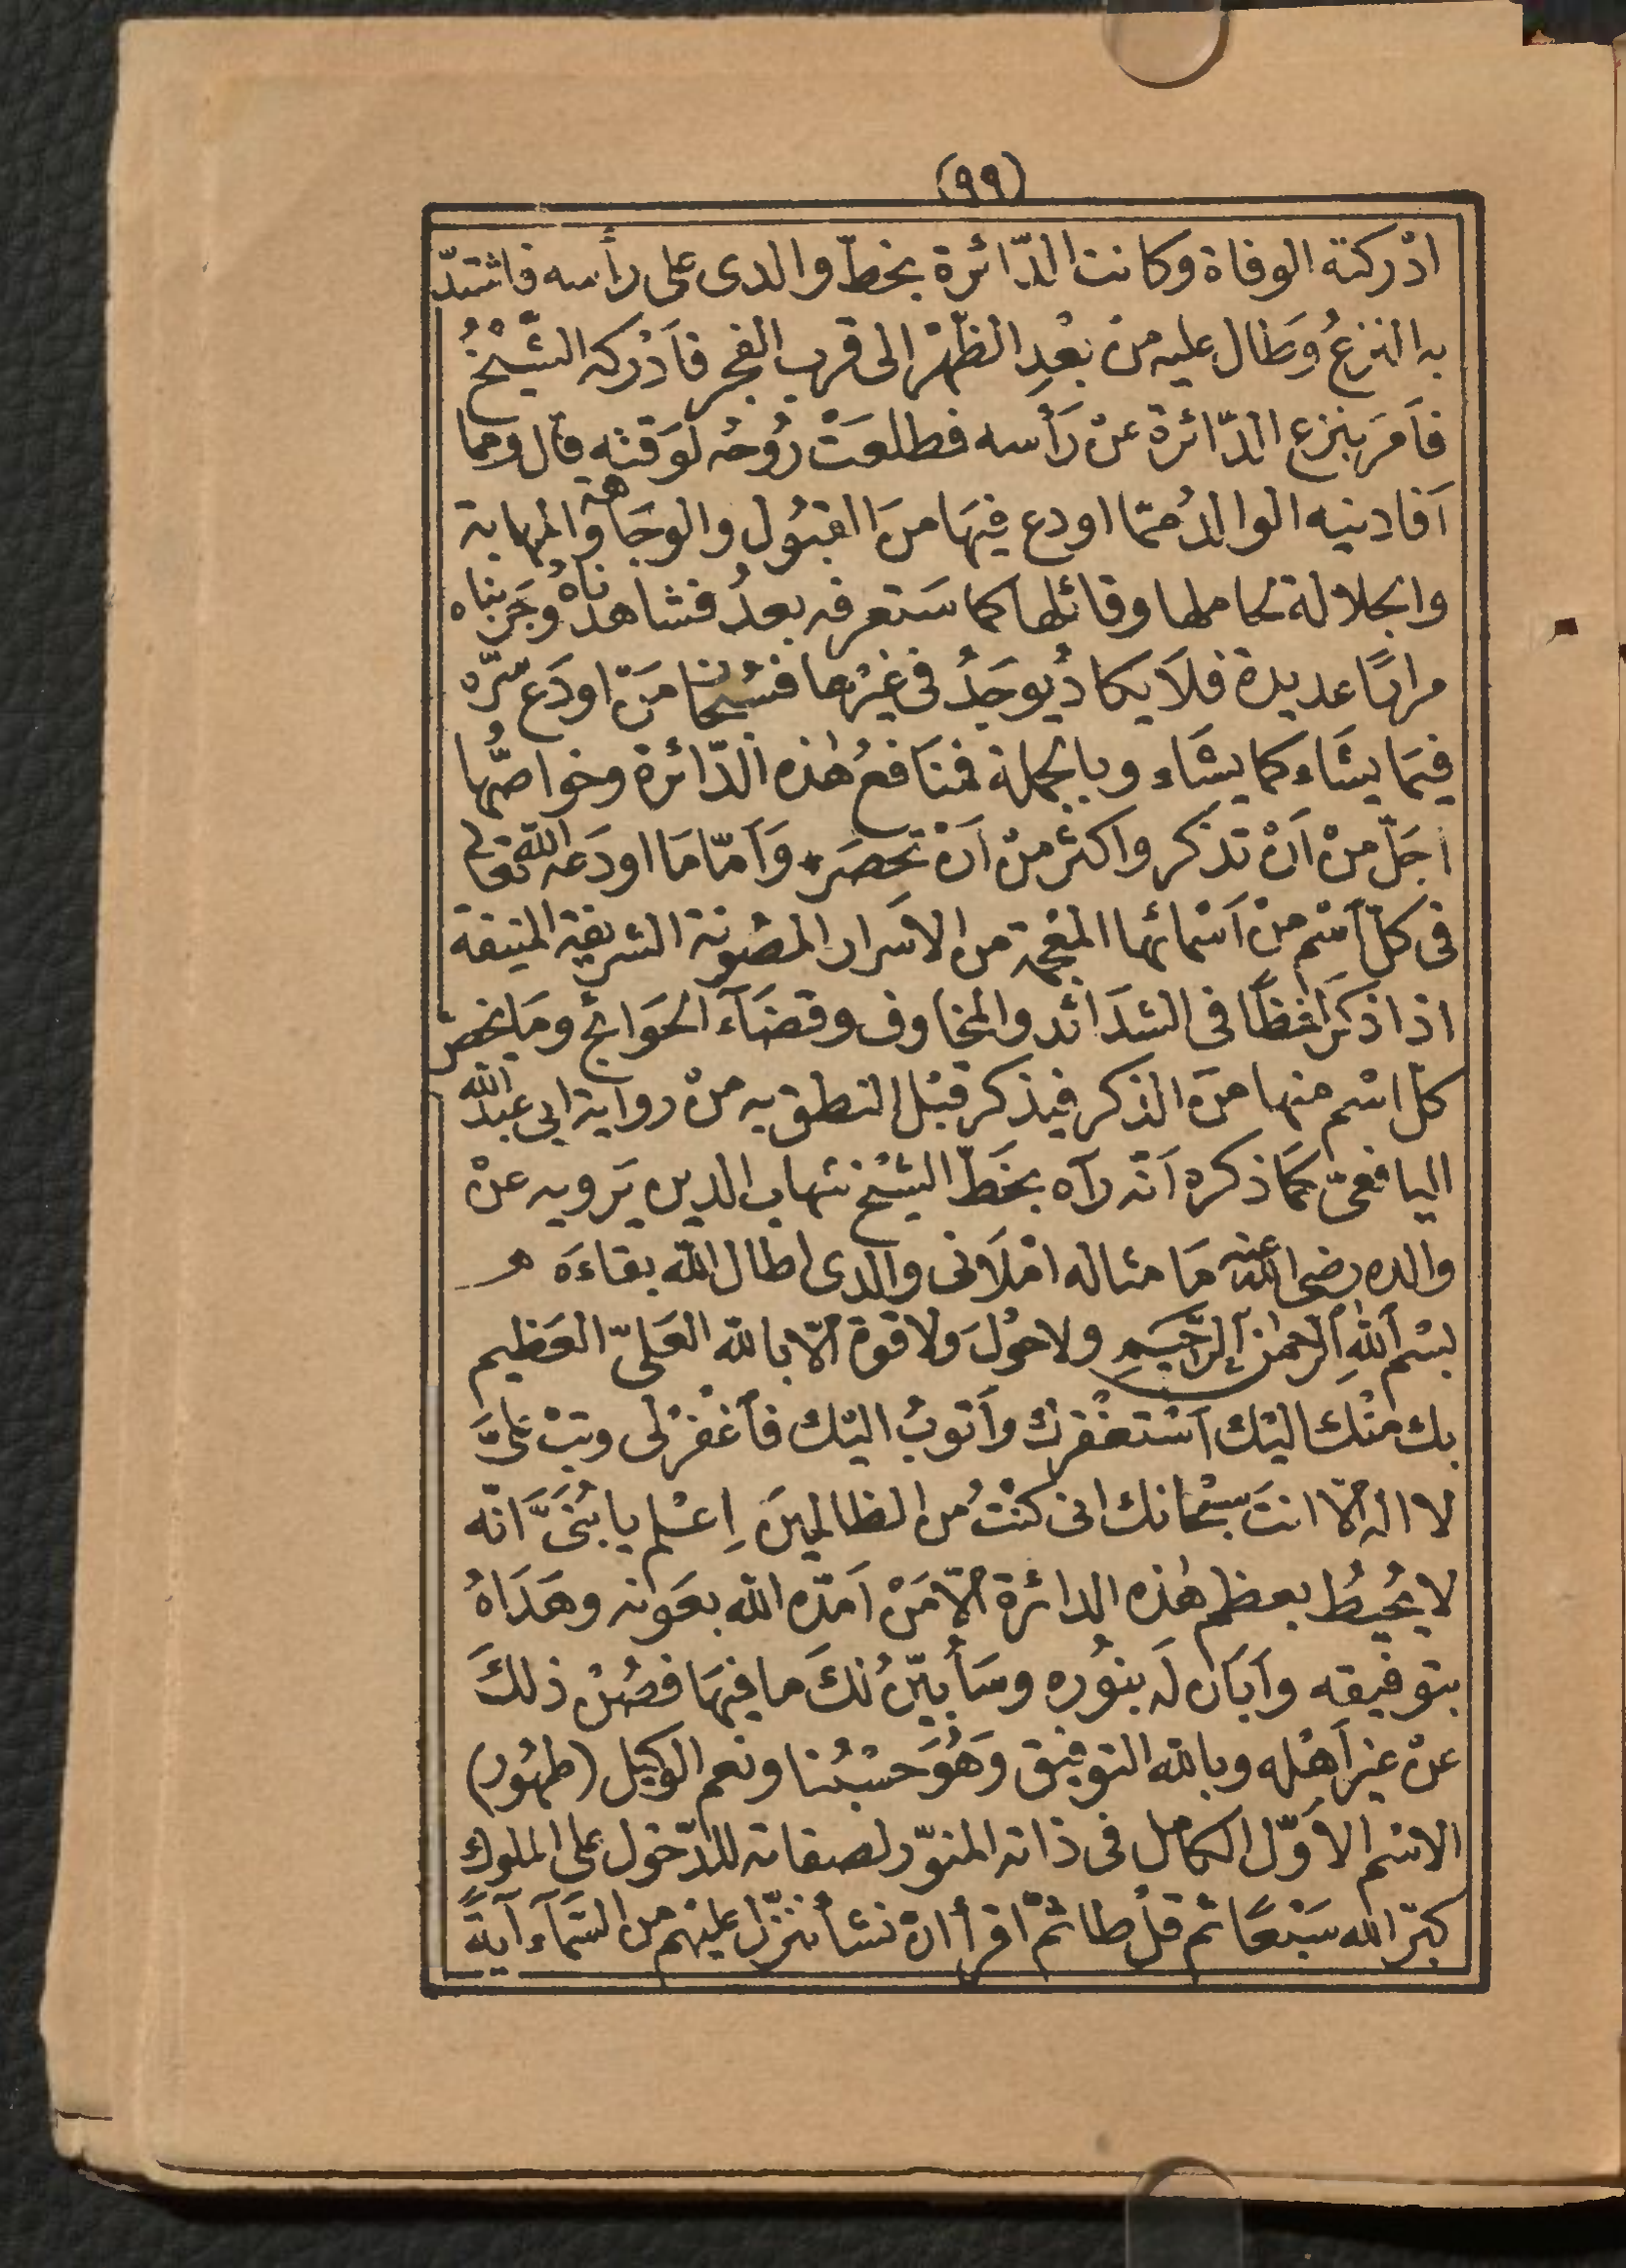 (٩٩)
ادْركتة الوفاة وكانت الدّائرة بخطّ والدى على رأسه فاشتدّ
به النزعُ وَطال عليه من بعْدِ الظّهْر الى قرب الفجر فاَدْركه الشّيْخُ
فاَمَر بنزع الدّائرة عنْ رَأسه فطلعَتْ رُوُحُه لوَقته قال ومما
اَفادنيه الوالدُ ممّا اودع فيهَا منَ القبُول والوجَاهة والمهابة
والجلالة لحاملها وقائلها كما سَتعرفه بعدُ فشاهدناهُ وَجَربناه
مرارًا عديدة فلاَ يكادُ يوجَدُ فى غيْرها فسُبحان مَنْ اودَع سّره
فيمَا يشَاء كما يشَاء وبالجملة فمنَافعُ هٰذه الدّائرة وخواصُّها
اجَلّ منْ اَنْ تذكر واكثر منْ اَنْ تحصَر * وَاَمّا مَا اودَعه الله تعالى
فى كلّ اَسْم منْ اَسْمائها المعْجمة من الاسَرار المصُونة الشريفة المنيفة
اذا ذكرَ لفظًا فى الشدَائد والمخاوف وقضَآء الحَوائج ومَا يخصّ
كلّ اسْم منها منَ الذكر فيذكر قبْل النطق به منْ رواية ابى عبد الله
اليافعىّ كمَا ذكره اَنّه رآه بخَطّ الشيْخ شهاب الدين يَرويه عنْ
والده رضى الله عنه مَا مثاله امْلاَنى والدى اطال الله بقاءَه
بسْم اللهِ الرحمٰن الرَّحيَمِ ولا حوْلَ وَلا قوة الّا بالله العَلىّ العَظيم
بك منْك اليْك اَسْتغفْرك واَتوبُ اليْك فاَغْفرْلى وتبْ علىَّ
لا اله الّا انتَ سبْحَانك انى كنْتُ من الظالمينَ اِعْلم يا بُنَىَّ اَنّه
لا يحُيطُ بعظم هٰذه الدائرة الّا مَنْ اَمَدّه الله بعَونه وهَدَاهُ
بتوفيقه واَبَان لَه بنوُره وسَأُبيّنُ لكَ ما فيهَا فصُنْ ذلكَ
عنْ غيْر اَهْله وبالله التوفيق وَهُوَ حَسْبُنا ونعم الوكيل (طهُور)
الاسْم الاوّل الكامل فى ذاته المنوّر لصفاته للدّخول على الملوك
كبّر الله سَبْعًا ثم قلْ طا ثمّ اقرأ انْ نشأْ ننزّل عليْهم من السّمَآء آيةً